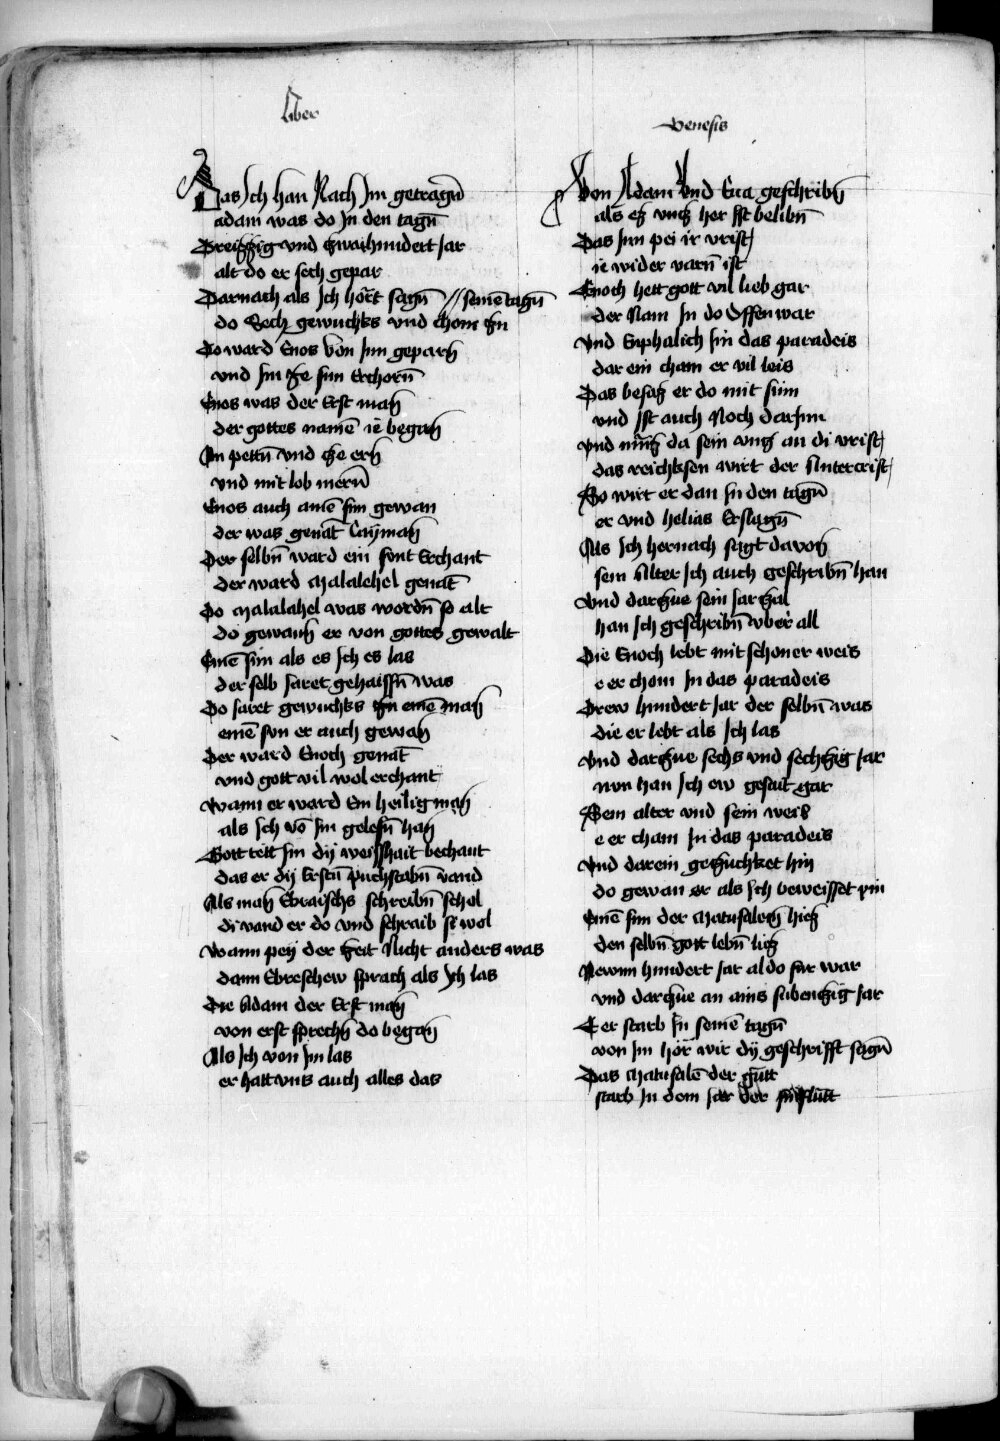 Liber
Genesis
Das Ich han Nach Im getragn̄
adam was do In den tagn̄
Dreiſſig vnd zwaihundert Jar
alt do er sech gepar
Darnach als Ich hort sagn̄ // seinē tagn̄
do Sech gewuchs vnd chom zu
Do ward Enos von Im geparn̄
vnd Im ze sun Erchorn̄
Enos was der Erst man̄
der gottes namē ie began̄
In pettn̄ vnd ze ern̄
vnd mit lob mern̄
Enos auch ainē sun gewan
der was genāt Cayman̄
Der selbn̄ ward ein sunt Erchant
der ward Malalehel genāt
Do Malalahel was wordn̄ so alt
do gewan̄ er von gottes gewalt
Einē sun als es Ich es las
der selb Jaret gehaissn̄ was
Do Jaret gewuchs zu einē man̄
einē sun er auch gewan̄
Der ward Enoch genāt
vnd gott vil wol erchant
Wann er ward Ein heilig man̄
als Ich vō Im gelesn̄ han̄
Gott tett Im dij weisshait bechant
das er dij Erstn̄ puchstabn̄ vand
Als man̄ Ebraischs schreibn̄ schol
di vand er do vnd schraib si wol
Wann peij der zeit Nicht anders was
dann Ebreschew sprach als Ich las
Die Adam der Erst man̄
von erst sprechn̄ do began̄
Als Ich von Im las
er hatt vns auch alles das
Von Adam Vnd Eua geschribn̄
als ez vnz her Ist belibn̄
Das Im pei ir vrist
ie wider varn̄ ist
Enoch hett gott vil lieb gar
der Nam In do Offenwar
vnd Enphalich Im das paradeis
dar ein cham er vil leis
Das besaz er do mit sinn
vnd Ist auch Noch darInn
vnd muz da sein vnz an di vrist
das reichksen wirt der Antercrist
So wirt er dan In den tagn̄
er vnd helias Erslagn̄
Als Ich hernach sagt davon̄
sein Alter Ich auch geschribn̄ han
Vnd darzue sein Jar zal
han Ich geschribn̄ vber all
Die Enoch lebt mit schoner weis
e er chom In das paradeis
Drew hundert Jar der selbn̄ was
die er lebt als Ich las
Vnd darzue sechs vnd sechzig Jar
nvn han Ich ew gesait gar
Sein alter vnd sein weis
e er cham In das paradeis
Vnd darein gezuchket hin
do gewan er als Ich beweisset pin
Einē sun der Matusalem̄ hiez
den selbn̄ gott lebn̄ liez
Newnn hundert Jar al do fur war
vnd darzue an ains subenzig Jar
Er starb In seinē tagn̄
von Im hor wir dij geschrifft sagn̄
Das Matusalē der gutt
starb In dem Jar der sinflutt